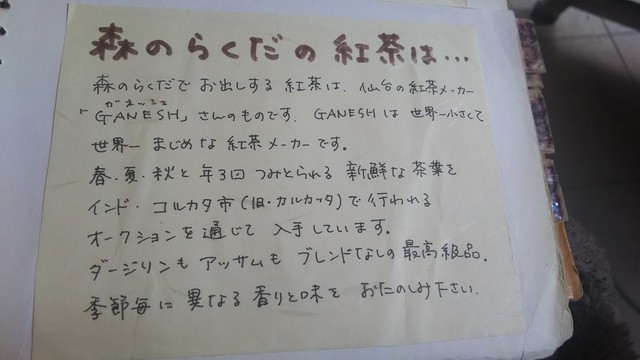 森のらくだの紅茶は…
森のらくだでお出しする紅茶は、仙台の紅茶メーカー
ガネッシュ
「GANESH」さんのものです。GANESHは世界一小さくて
世界一まじめな紅茶メーカーです。
春・夏・秋と年3回つみとられる新鮮な茶葉を
インド・コルカタ市(旧・カルカッタ)で行われる
オークションを通じて入手しています。
ダージリンもアッサムもブレンドなしの最高級品。
季節毎に異なる香りと味をおたのしみ下さい.